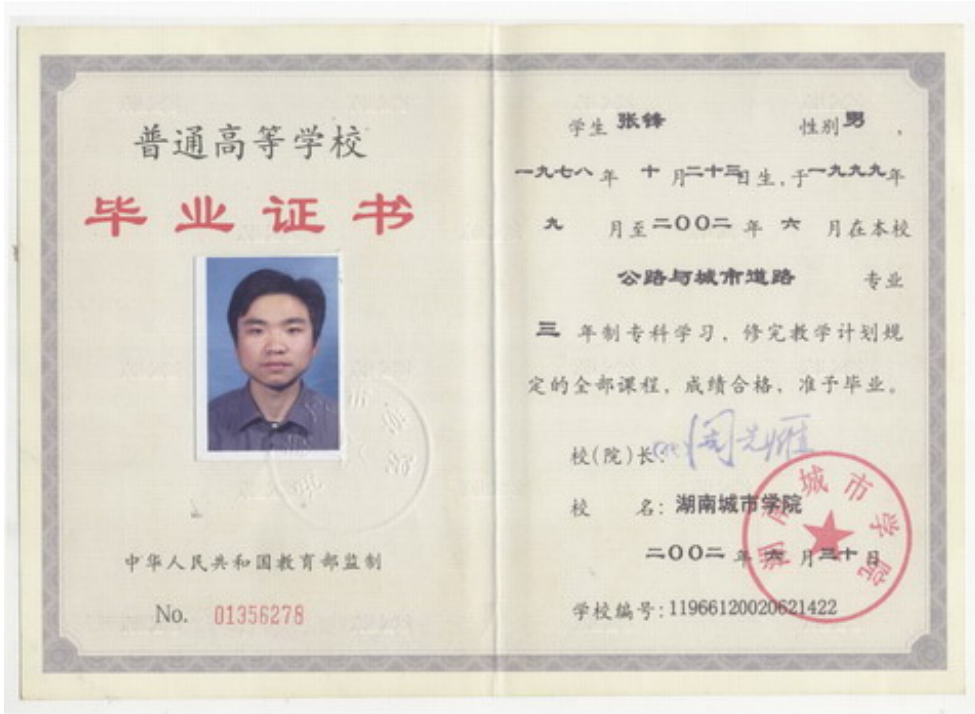 普通高等学校
毕业证书
中华人民共和国教育部监制
No. 01356278
学生 张锋 性别 男，
一九七八年 十 月二十三日生，于一九九九年
九 月至二〇〇二年 六 月在本校
公路与城市道路 专业
三 年制专科学习，修完教学计划规
定的全部课程，成绩合格，准予毕业。
校(院)长：
校 名：湖南城市学院
二〇〇二年 六 月三十日
学校编号：11966120020621422
湖南城市学院